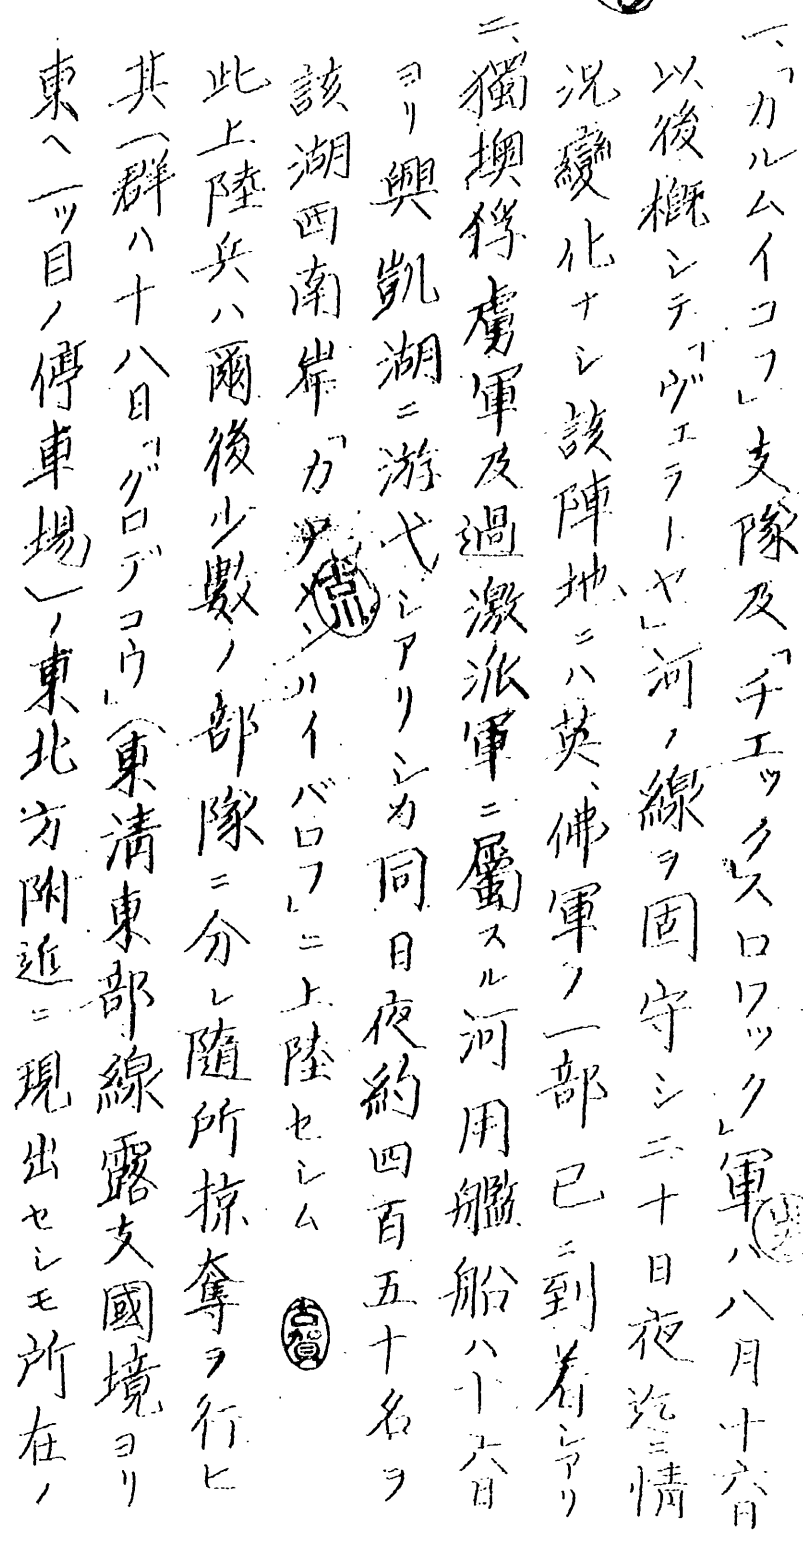 一、「カルムイコフ」支隊及「チエック、スロワック」軍ハ八月十六日
以後概シテ「ヴェラーヤ」河ノ線ヲ固守シ二十日夜迄ニ情
況變化ナシ該陣地ニハ英、佛軍ノ一部已ニ到着シアリ
二、獨墺俘虜軍及過激派軍ニ屬スル河用艦船ハ十六日
ヨリ興凱湖ニ游弋シアリシカ同日夜約四百五十名ヲ
該湖西南岸「カ ハイバロフ」ニ上陸セシム
此上陸兵ハ爾後少數ノ部隊ニ分レ随所掠奪ヲ行ヒ
其一群ハ十八日「グロデコウ」(東淸東部線露支國境ヨリ
東ヘ一ッ目ノ停車場)ノ東北方附近ニ現出セシモ所在ノ
古川
古賀